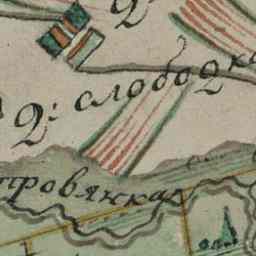 2:
2: слободка
тровянка